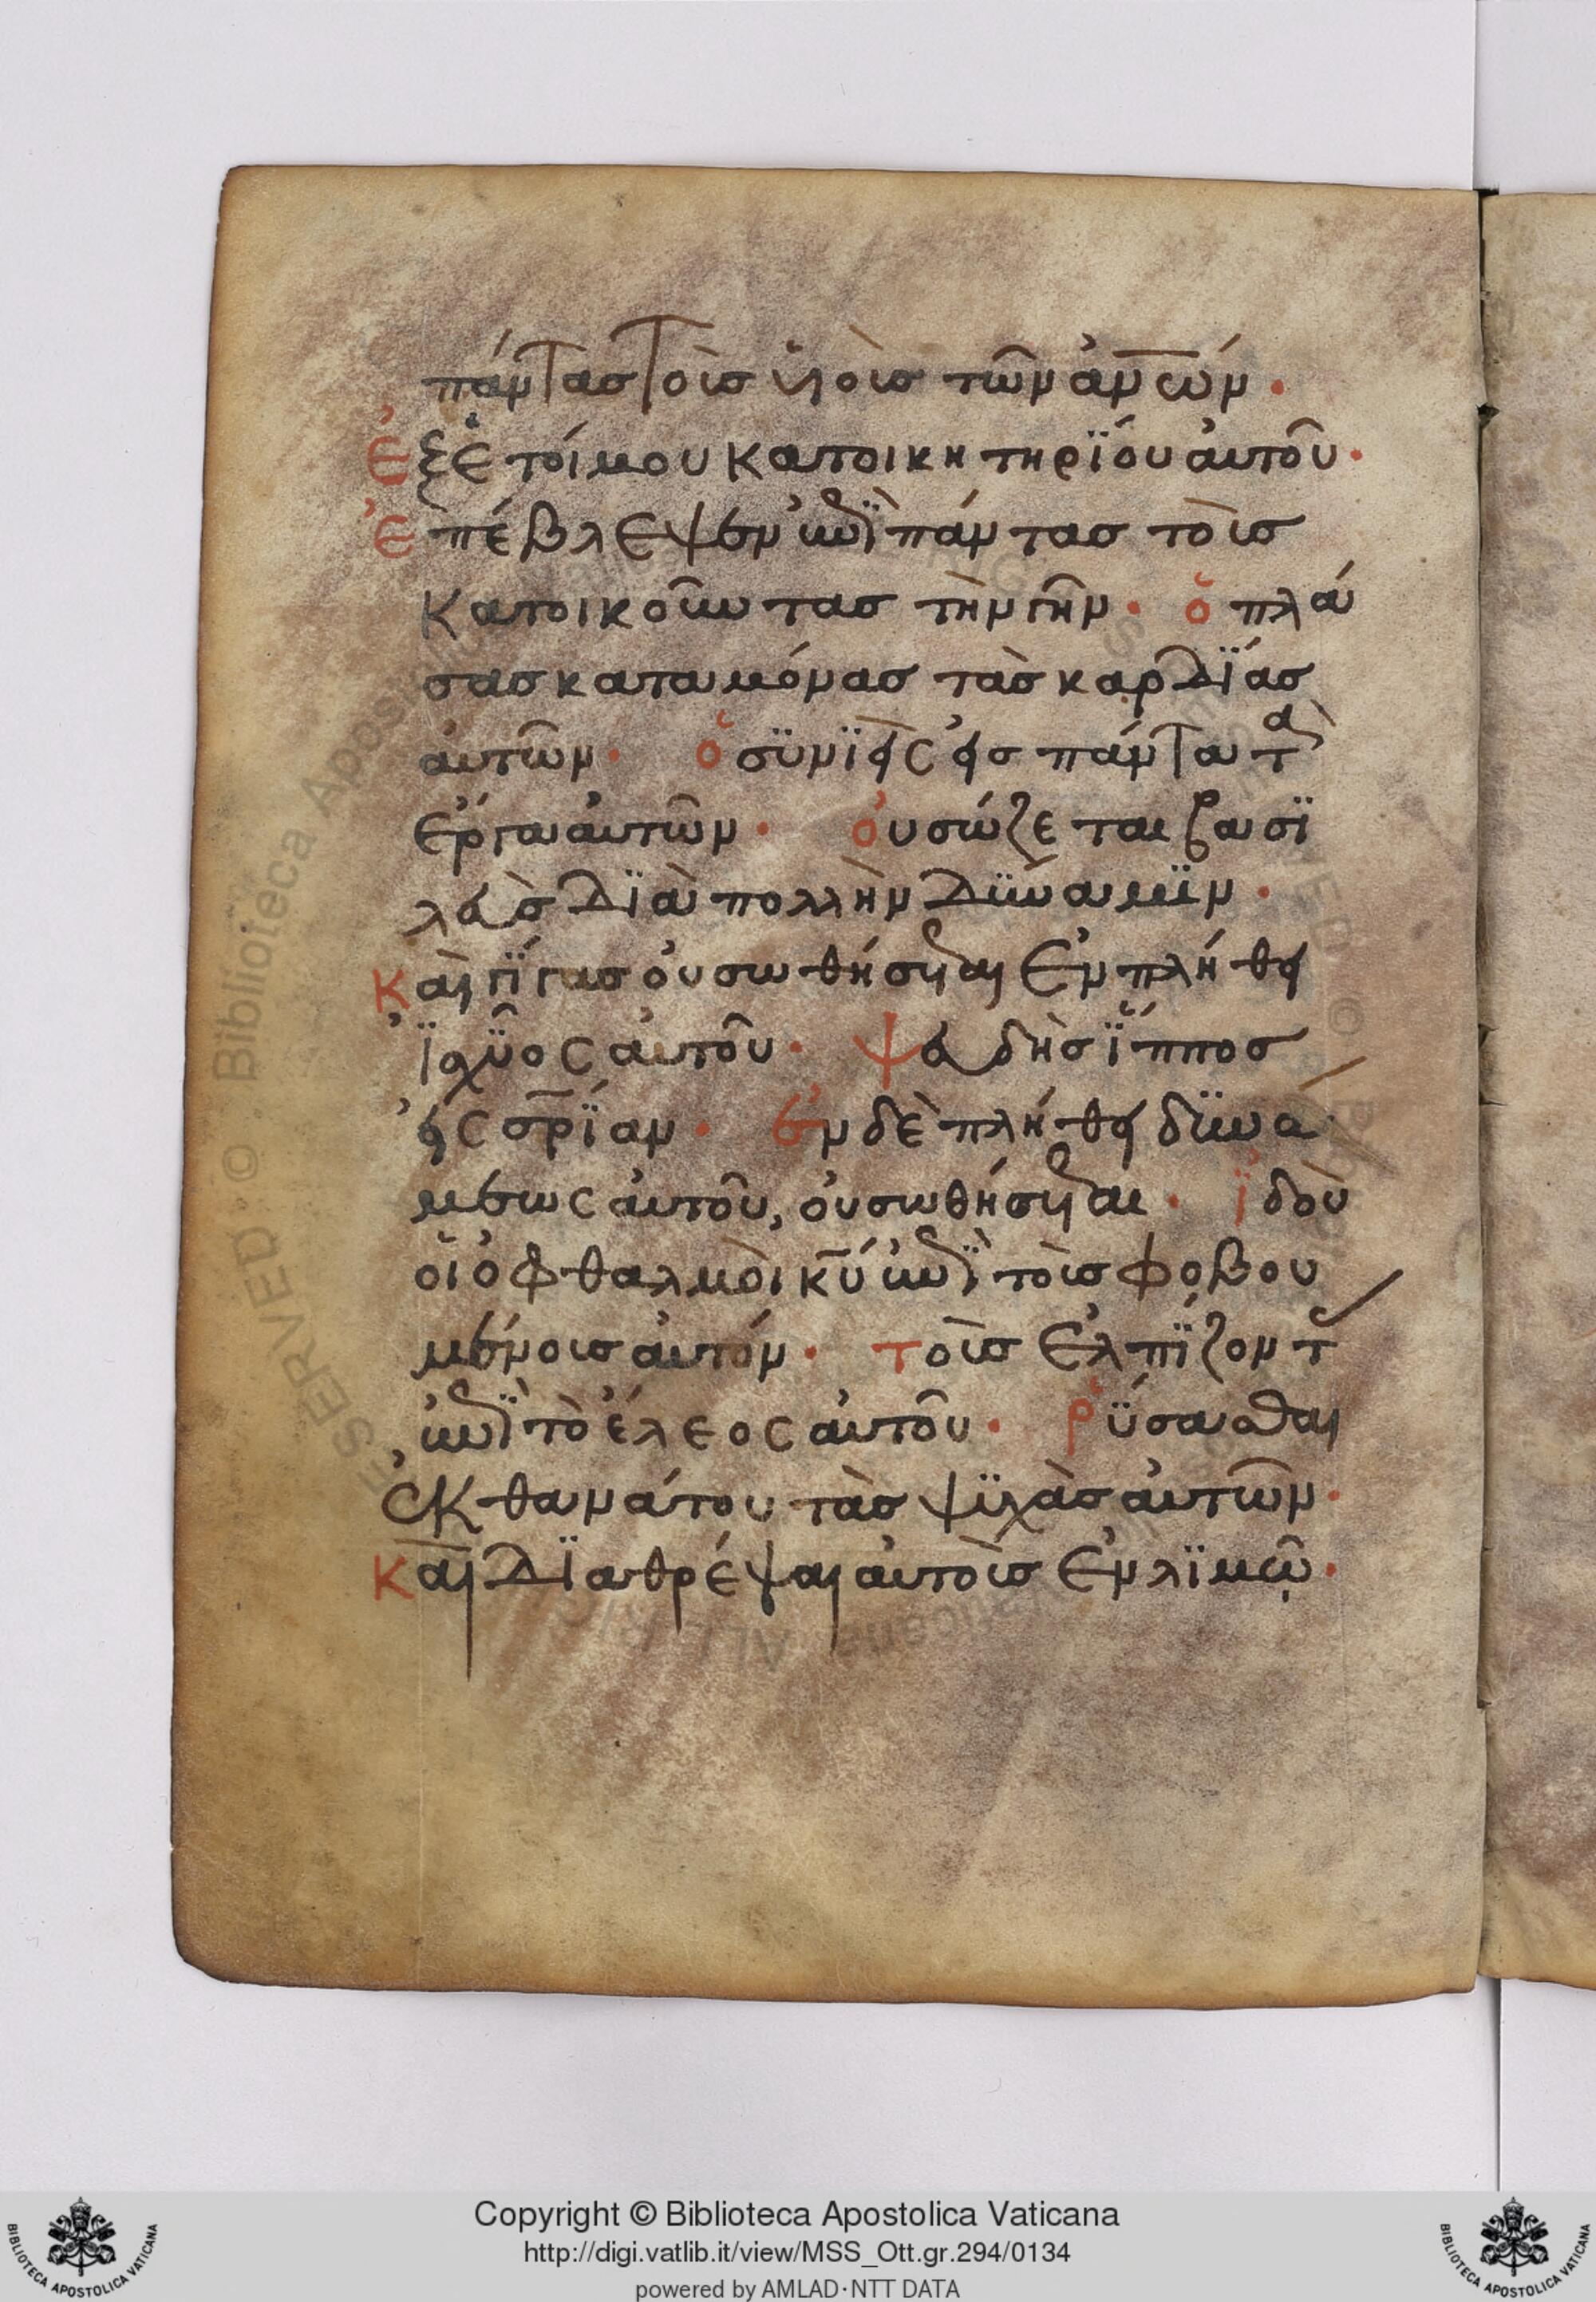 πάντας τοὺς υἱοὺς τῶν ἀν̅ων̅.
Ἐξ ἑτοίμου κατοικητηρΐου ἀυτοῦ.
Ἐπέβλεψεν ἐπῒ πάντας τοὺς
κατοικοῦντας τὴν γῆν. ὁ πλά
σας καταμόνας τὰς καρδΐας
ἀυτῶν. ὁ σϋνϊεὶς εἰς πάντα τὰ
ἔργα ἀυτῶν. ὀυ σώζεται βασϊ
λεὺς δϊὰ πολλὴν δϋναμϊν.
Καὶ γΐγας ὀυ σωθήσεται ἐν πλήθει
ἰσχϋος ἀυτοῦ. ψευδὴς ἵππος
εἰς σρ̅ΐαν. ἐν δὲ πλήθει δϋνά
μεως ἀυτοῦ, ὀυ σωθήσεται. ἰδοὺ
οἱ ὀφθαλμοὶ κ̅υ ἐπῒ τοὺς φοβου
μένους ἀυτόν. τοὺς ἐλπΐζοντ
ἐπῒ τὸ ἔλεος ἀυτοῦ. ῥϋσασθαι
ἐκ θανάτου τὰς ψϋχὰς ἀυτῶν.
Καὶ δϊαθρέψαι ἀυτοὺς ἐν λϊμῷ.
Copyright © Biblioteca Apostolica Vaticana
http://digi.vatlib.it/view/MSS_Ott.gr.294/0134
powered by AMLAD·NTT DATA